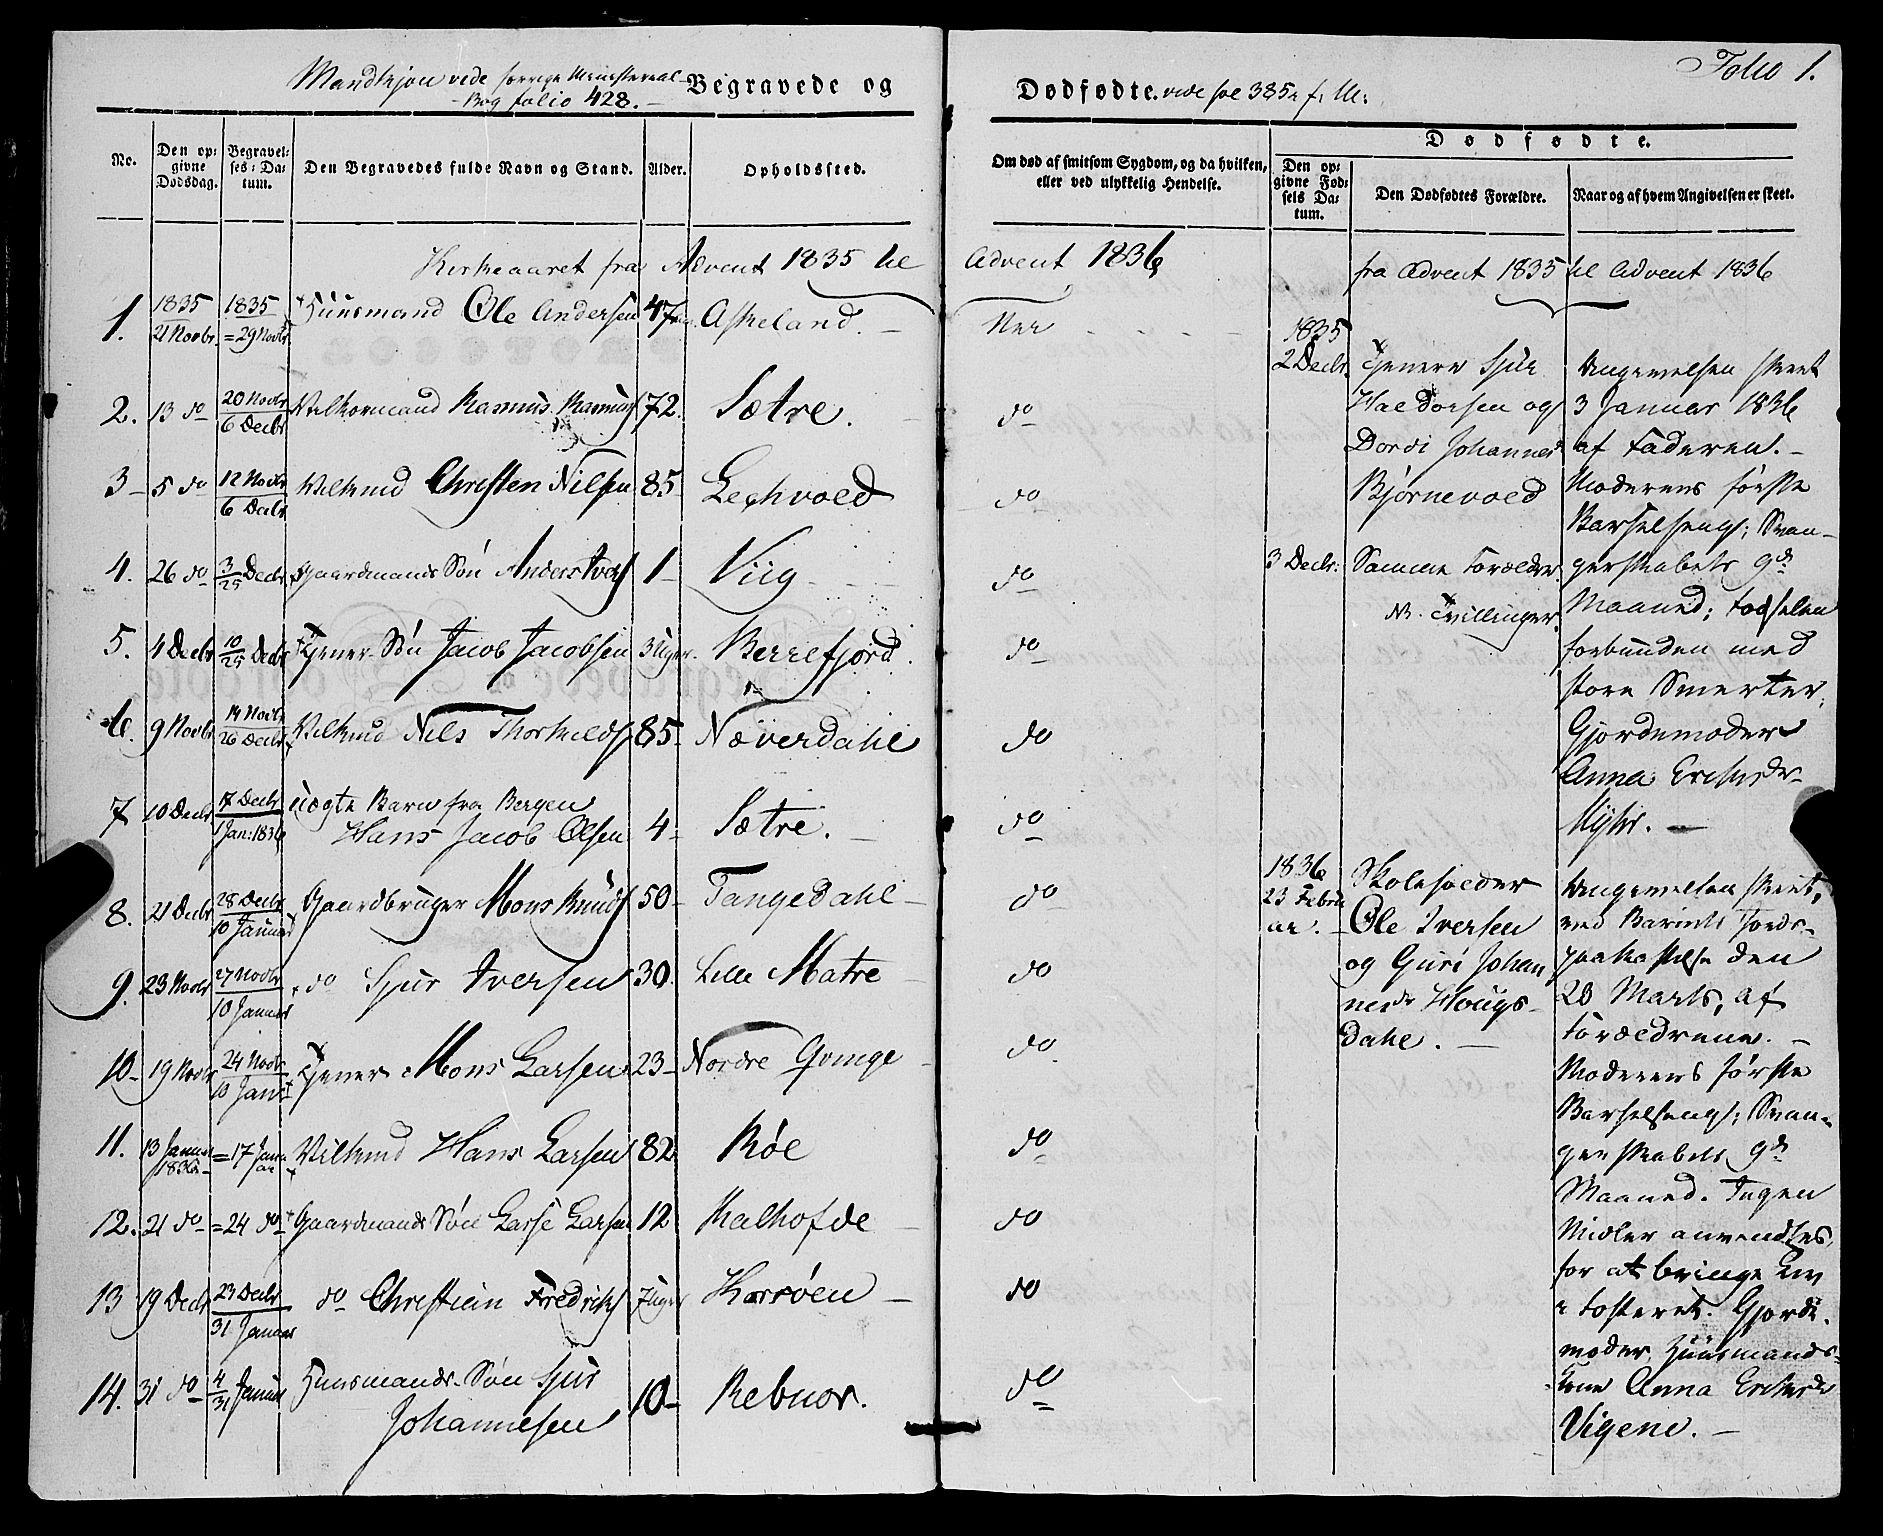 Mandkjøn vide forrige Ministerial-
Bog folio 428. –
Begravede og
Dødfødte. vide fol 385 i f: M:
Folio 1.
No.
Den op-
givne
Dødsdag.
Begravel-
ses-Da-
tum.
Den Begravedes fulde Navn og Stand.
Alder.
Opholdssted.
Om død af smitsom Sygdom, og da hvilken,
eller ved ulykkelig Hendelse.
Dødfødte.
Den op-
givne Fød-
sels Da-
tum.
Den Dødfødtes Forældre.
Naar og af hvem Angivelsen er skeet.
Kirkeaaret fra Advent 1835 til Advent 1836
fra Advent 1835 til Advent 1836
1. 1835 21 Novbr. 1835 = 29 Novbr. Huusmand Ole Andersen 47 Askeland. – Nei
2. 13 do 20 Novbr 6 Decbr Vilkormand Rasmus Rasmus 72. Sætre. do
3 – 5 do 12 Novbr 6 Decbr Vilkmd Christen Nilsen 85 Lechvold do
4. 26 do 3/25 Decbr Gaardmands Søn Anders Ivers 1 – Viig do
5. 4 Decbr 10/25 Decbr Tjener-Søn Jacob Jacobsen 3 Uger. Berrefjord. do
6. 9 Novbr 14 Novbr 26 Decbr Vilkmd Nels Thorkilds 85 – Næverdahl do
7 10 Decbr 17 Decbr 1 Jan: 1836 uægte Barn fra Bergen
Hans Jacob Olsen 4 – Sætre. – do
8. 21 Decbr 28 Decbr 10 Januar Gaardbruger Mons Knuds 50 – Tangedahl – do
9. 23 Novbr 27 Novbr 10 Januar do Sjur Iversen 30. Lille Matre – do
10 – 19 Novbr 24 Novbr 10 Jan: Tjener Mons Larsen 23 – Nordre Qvinge – do
11. 13 Januar 1836 = 17 Januar Vilkmd Hans Larsen 82 Røe do
12. 21 do = 24 do Gaardmands Søn Lasse Larsen 12 Kalhofde – do
13 19 Decbr 23 Decbr 31 Januar do Christian Fredriks 7 Uger Korsøen – do
14. 31 do 4/31 Januar Huusmands-Søn Sjur
Johannesen 10 – Rebnor. do
1835
2 Decbr.
Tjener Sjur
Haldorsen og
Dordi Johannesd
Bjørnevold
3 Decbr:
Samme Forældre.
NB. Tvillinger.
Angivelsen skeet
3 Januar 1836
af Faderen. –
Moderens første
Barselseng; Svan-
gerskabets 9de
Maaned; Fødselen
forbunden med
store Smerter,
Gjordemoder
Anna Erichsdr
Myhr. –
1836
23 Febru
ar. –
Skoleholder
Ole Iversen
og Guri Johan
nesdr Hougs-
dahl. –
Angivelsen skeet,
ved Barnets Jords-
paakastelse den
28 Marts, af
Forældrene. –
Moderens første
Barselseng; Svan-
gerskabets 9de
Maaned. Ingen
Midler anvendtes,
for at bringe Liv
i Fosteret. Gjorde-
moder Huusmands-
Kone Anna Erichsdr
Vigene. –